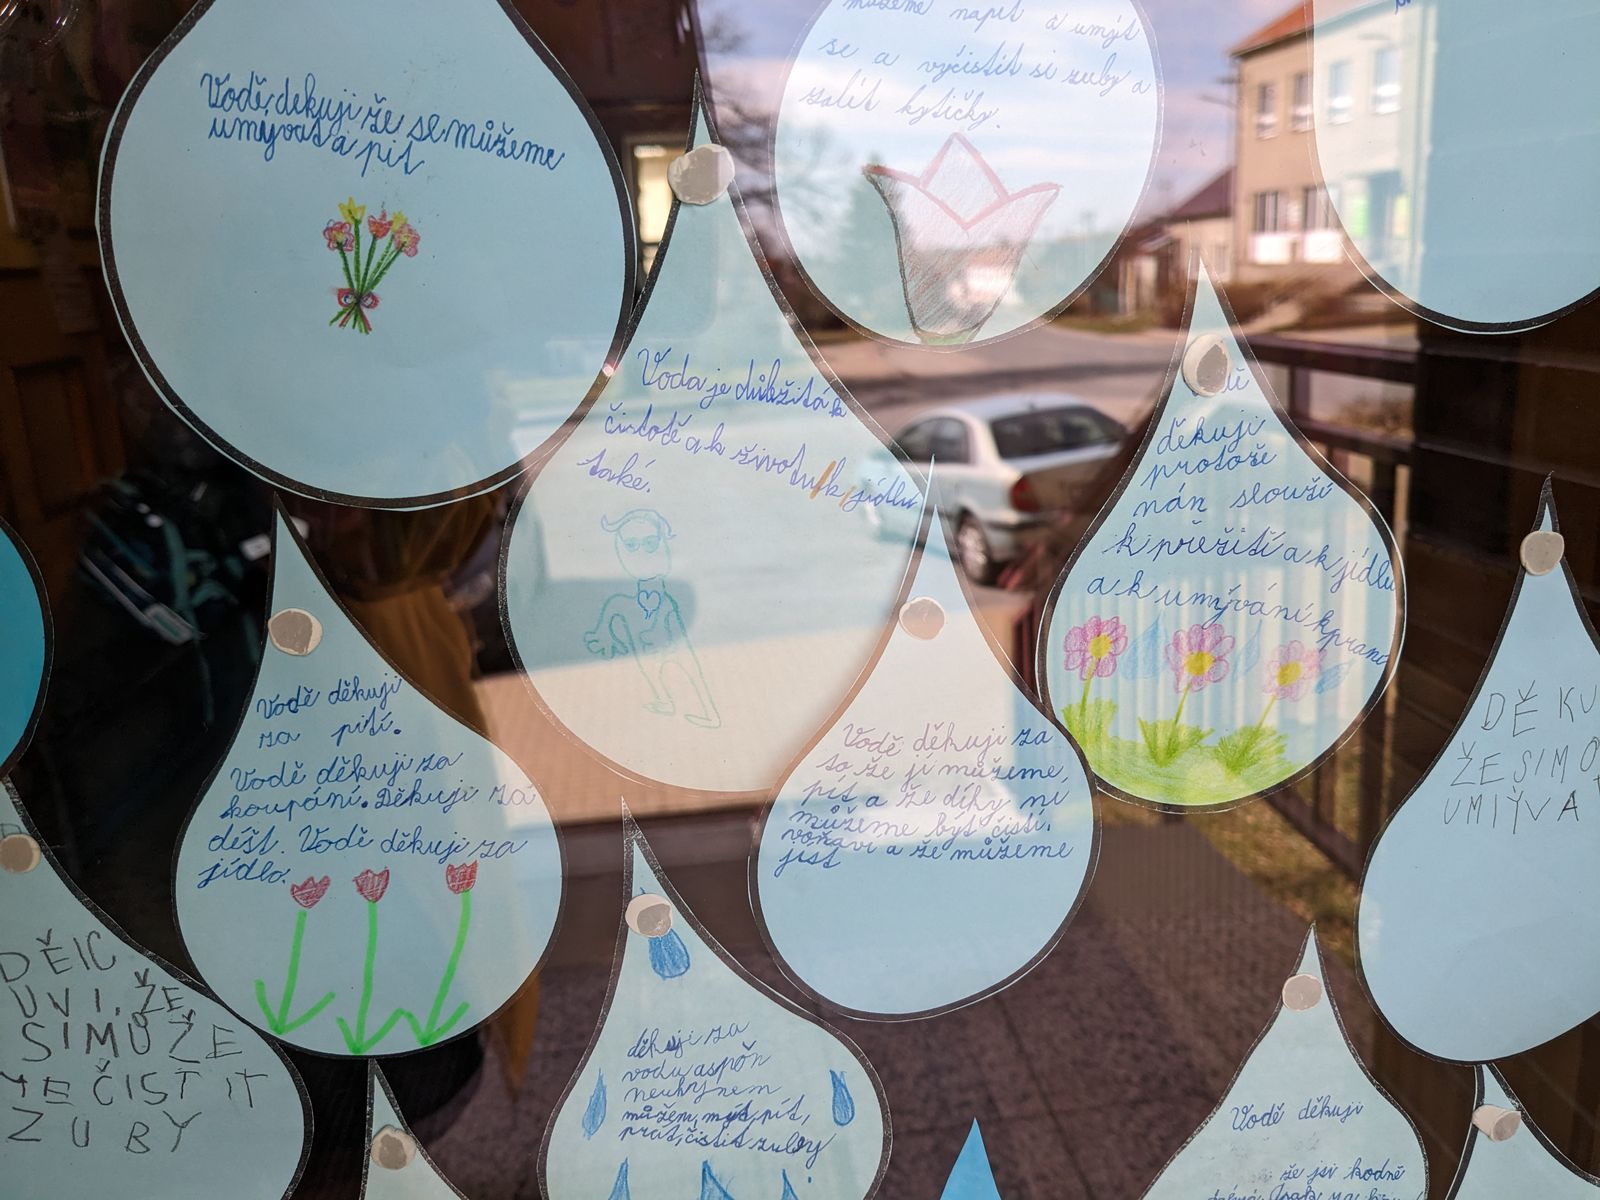 Vodě, dekuji že se můžeme
umývat a pít
můžeme napít a umýt
se a vyčistit si zuby a
zalít kytičky.
Voda je důležitá k
čistotě a k životu k jídlu
také.
děkuji
protože
nán slouží
k přežití a k jídlu
a k umývání k praní
Vodě děkuji
za pití.
Vodě děkuji za
koupání. Děkuji za
déšť. Vodě děkuji za
jídlo.
Vodě děkuji za
to že jí můžeme,
pít a že díky ní
můžeme být čistí,
voňaví a že můžeme
jíst
DĚKU
ŽE SI MO
UMÍÝVA
DĚK
UVI, ŽE
SI MŮŽE
ME ČISTIT
ZUBY
děkuji za
vodu aspǒn
neuhynem
můžem, mýt, pít,
prát, čistit zuby
Vodě děkuji
že jsi hodně